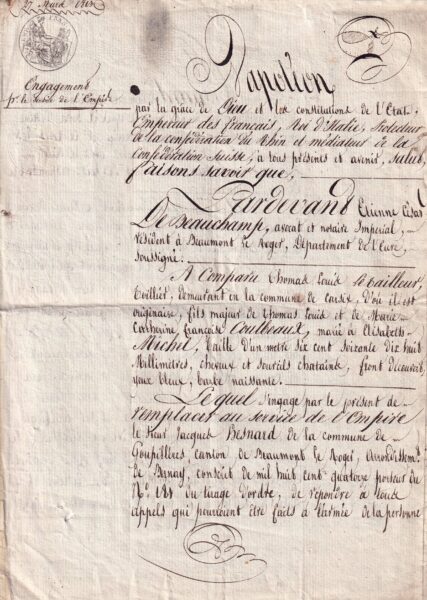 27 Mars 1813
Engagement
pr. le Service de l'Empire
Napoléon
par la grâce de Dieu et les constitutions de l'Etat,
Empereur des français, Roi d'Italie, Protecteur
de la confédération du Rhin et médiateur de la
Confédération Suisse, à tous présents et avenir, salut,
faisons savoir que,
Pardevant Etienne César
De Beauchamp, avocat et notaire Impérial,
résident à Beaumont le Roger, Département de l'Eure,
soussigné:
A Comparu Thomas Louis le tailleur,
toillier, demeurant en la commune de, d'où il est
originaire, fils majeur de Thomas Louis et de Marie
Catherine françoise Coulbeaux, marié à Elisabeth
Michel, taille d'un metre six cent soixante dix huit
Millimètres, cheveux et sourcils chatains, front découvert,
yeux bleux, barbe naissante.
Lequel s'engage par le présent de
remplacer au service de l'Empire
le sieur Jacques Besnard de la commune de
Goupillères canton de Beaumont le Roger, Arrondissemt.
de Bernay, conscrit de mil huit cent quatorze porteur du
No. 121 du tirage d'ordre, de répondre à tous
appels qui pourroient être faits à l'armée de la personne